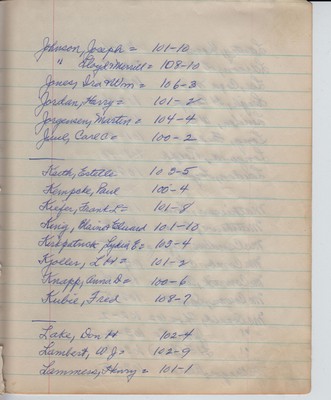 Johnson, Joseph = 101-10
" Lloyd Merritt = 108-10
Jones, Ira & Wm = 106-3
Jordan, Harry = 101-2
Jorgensen, Martin = 104-4
Carl = 100-2
Keith, Estelle 105-5
Kempcke, Paul 100-4
Kiefer, Frank L = 101-8
King, Blaine Edward 101-10
Kirkpatrick, Lydia E = 103-4
Kjoller, L H = 101-2
Knapp, Anna D = 100-6
Kubie, Fred 108-7
Lake, Don H 102-4
Lambert, W J = 102-9
Lammers, Henry = 101-1